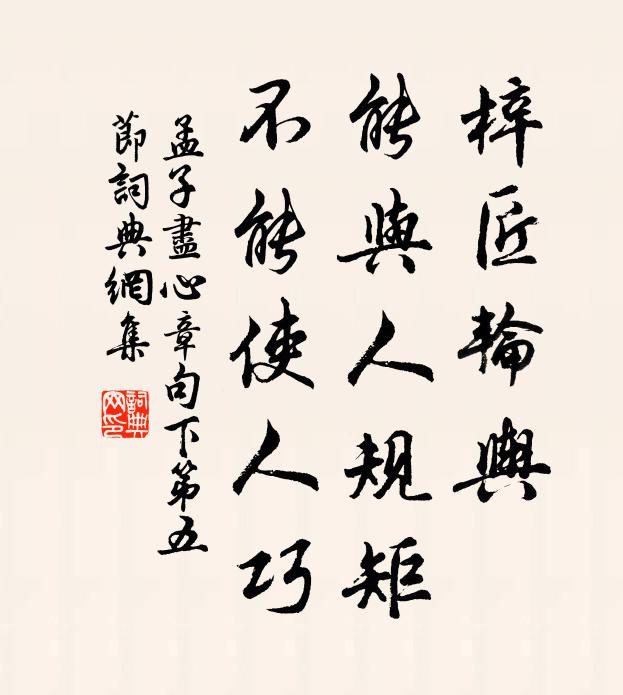 梓匠輪輿
能與人規矩
不能使人巧
孟子盡心章句下第五
節詞典網集
詞典
网印